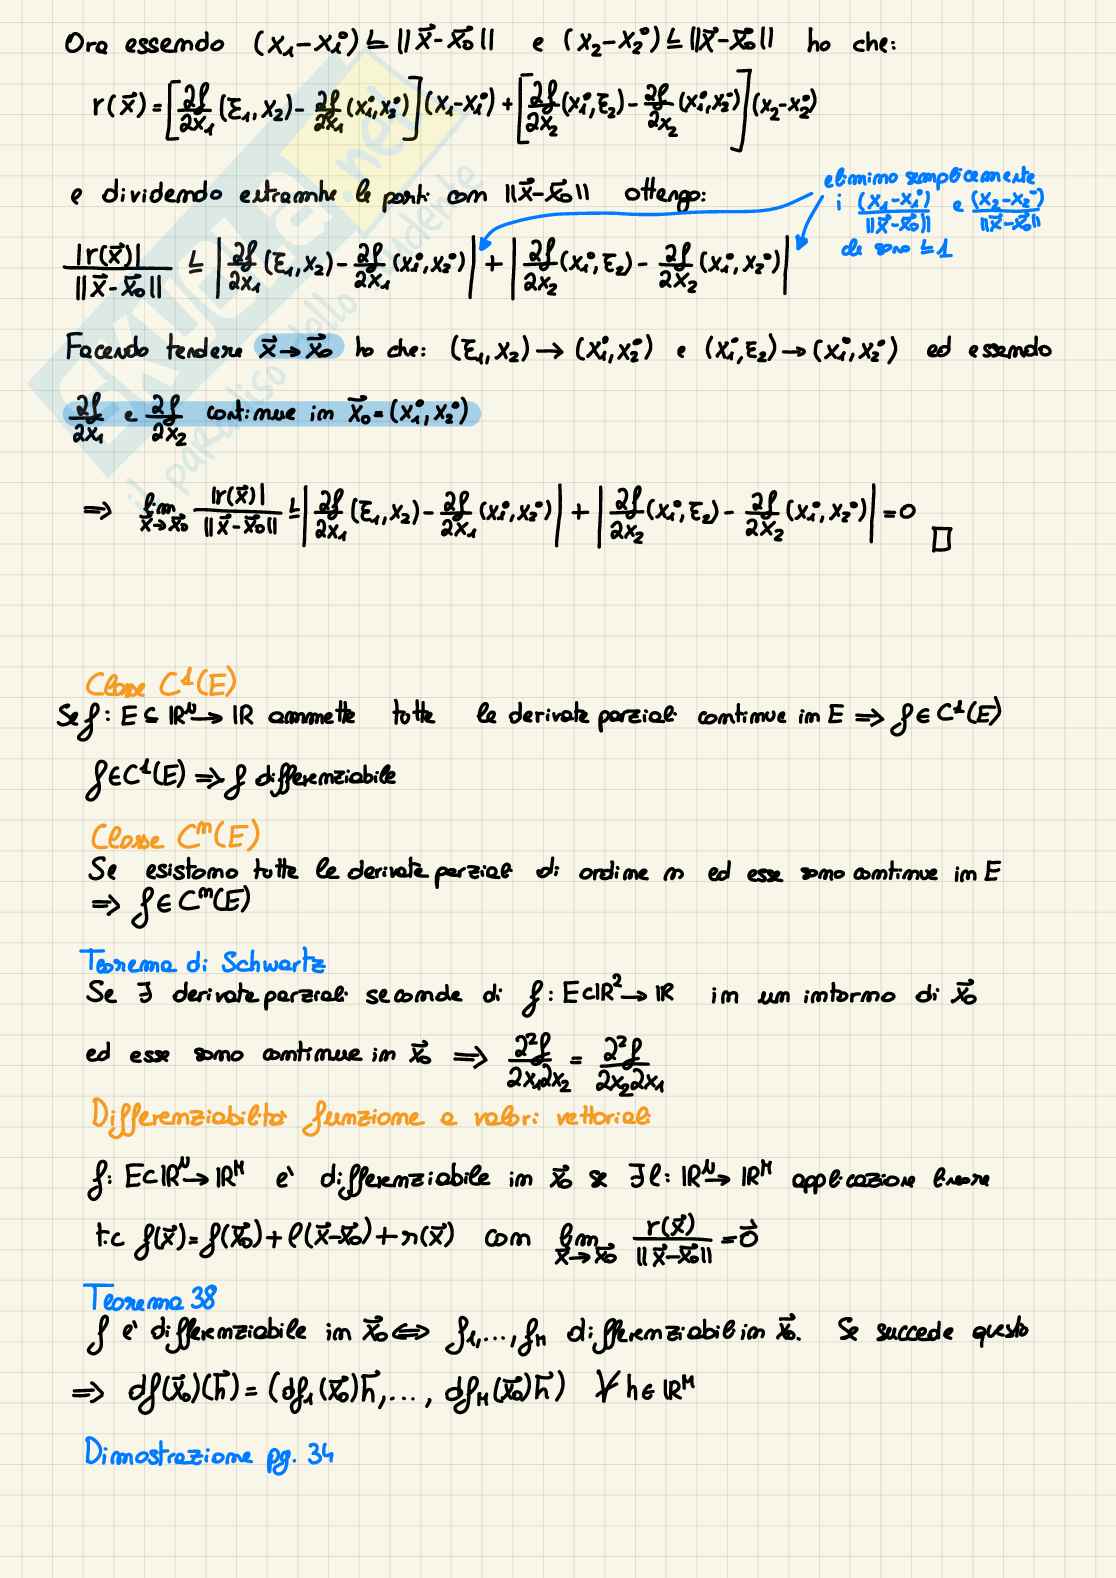 Ora essendo (x₁-x₁°) ≤ ||x⃗-x⃗₀|| e (x₂-x₂°) ≤ ||x⃗-x⃗₀|| ho che:
r(x⃗) = [∂f/∂x₁ (ξ₁,x₂) - ∂f/∂x₁ (x₁°,x₂°)] (x₁-x₁°) + [∂f/∂x₂ (x₁°,ξ₂) - ∂f/∂x₂ (x₁°,x₂°)] (x₂-x₂°)
e dividendo entrambe le parti con ||x⃗-x⃗₀|| ottengo:
elimino semplicemente
i (x₁-x₁°)/||x⃗-x⃗₀|| e (x₂-x₂°)/||x⃗-x⃗₀||
che sono ≤ 1
|r(x⃗)|/||x⃗-x⃗₀|| ≤ |∂f/∂x₁ (ξ₁,x₂) - ∂f/∂x₁ (x₁°,x₂°)| + |∂f/∂x₂ (x₁°,ξ₂) - ∂f/∂x₂ (x₁°,x₂°)|
Facendo tendere x⃗→x⃗₀ ho che: (ξ₁,x₂) → (x₁°,x₂°) e (x₁°,ξ₂) → (x₁°,x₂°) ed essendo
∂f/∂x₁ e ∂f/∂x₂ continue in x⃗₀=(x₁°,x₂°)
⇒ lim x⃗→x⃗₀ |r(x⃗)|/||x⃗-x⃗₀|| ≤ |∂f/∂x₁ (ξ₁,x₂) - ∂f/∂x₁ (x₁°,x₂°)| + |∂f/∂x₂ (x₁°,ξ₂) - ∂f/∂x₂ (x₁°,x₂°)| = 0 □
Classe C¹(E)
Se f: E⊆ℝᴺ→ℝ ammette tutte le derivate parziali continue in E ⇒ f∈C¹(E)
f∈C¹(E) ⇒ f differenziabile
Classe Cⁿ(E)
Se esistono tutte le derivate parziali di ordine n ed esse sono continue in E
⇒ f∈Cⁿ(E)
Teorema di Schwartz
Se ∃ derivate parziali seconde di f: E⊂ℝ²→ℝ in un intorno di x⃗₀
ed esse sono continue in x⃗₀ ⇒ ∂²f/∂x₁∂x₂ = ∂²f/∂x₂∂x₁
Differenziabilità funzione a valori vettoriali
f: E⊂ℝᴺ→ℝᴹ è differenziabile in x⃗₀ se ∃ l: ℝᴺ→ℝᴹ applicazione lineare
t.c f(x⃗)=f(x⃗₀)+l(x⃗-x⃗₀)+r(x⃗) con lim x⃗→x⃗₀ r(x⃗)/||x⃗-x⃗₀|| = 0⃗
Teorema 38
f è differenziabile in x⃗₀ ⇔ f₁,...,f_M differenziabili in x⃗₀. Se succede questo
⇒ df(x⃗₀)(h⃗) = (df₁(x⃗₀)h⃗,..., df_M(x⃗₀)h⃗) ∀h∈ℝᴹ
Dimostrazione pg. 34